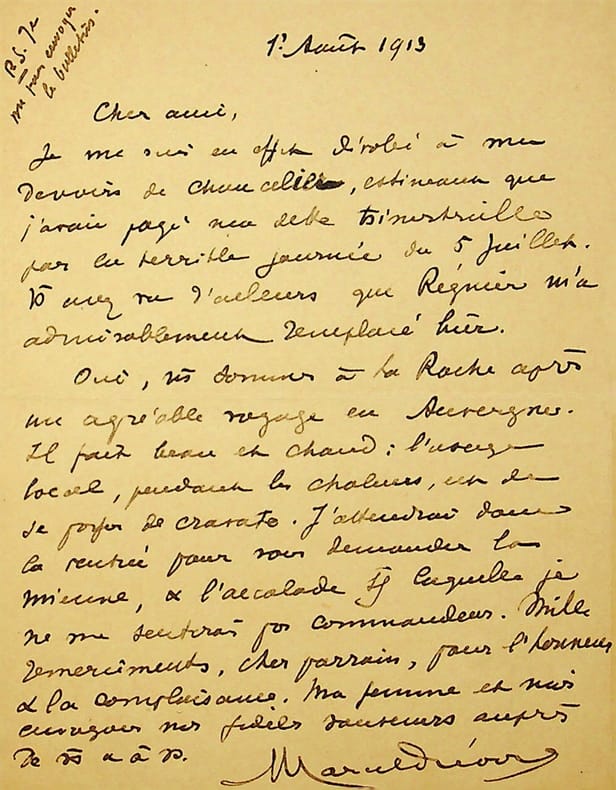 P.S. Je
me fais envoyer
le bulletin.
1er Août 1913
Cher ami,
Je me suis en effet dérobé à mes
devoirs de chancelier, estimant que
j'avais payé ma dette trimestrielle
par la terrible journée du 5 juillet.
Vs avez vu d'ailleurs que Régnier m'a
admirablement remplacé hier.
Oui, ns sommes à La Roche après
un agréable voyage en Auvergne.
Il fait beau et chaud ; l'usage
local, pendant les chaleurs, est de
se passer de cravate. J'attendrai donc
la rentrée pour vous demander la
mienne, & l'accolade sans laquelle je
ne me sentirais pas commandeur. Mille
remerciments, cher parrain, pour l'honneur
& la complaisance. Ma femme et moi
envoyons nos fidèles auprès
de vs à vs.
Marcel Prévost